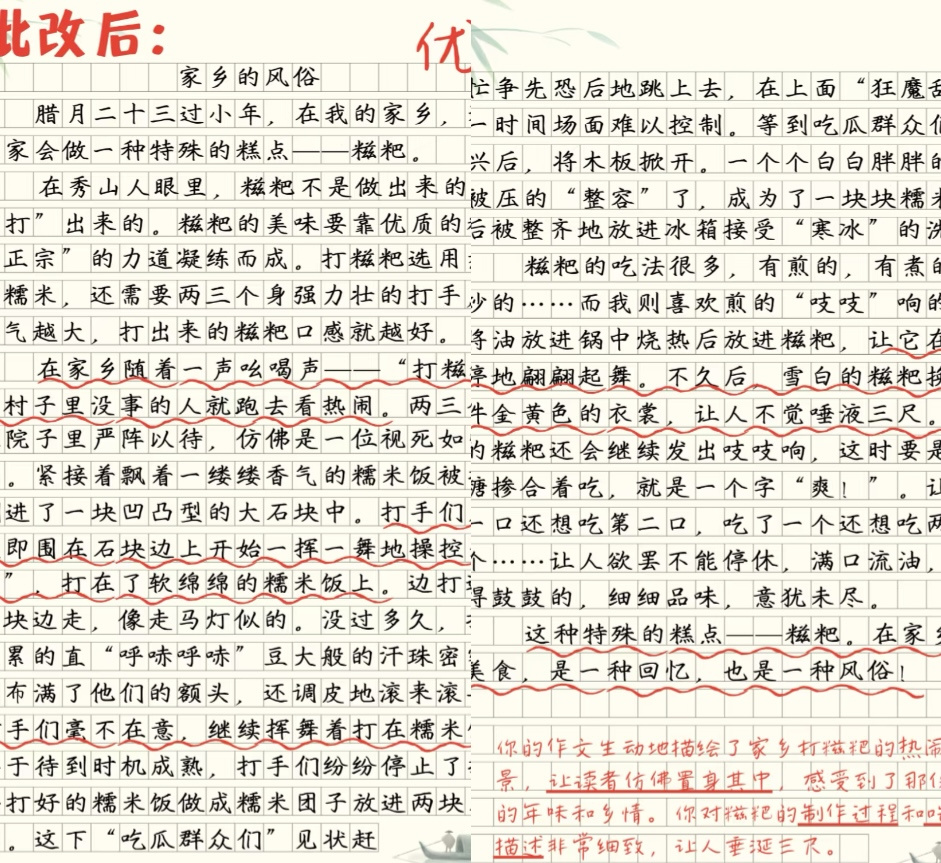 此改后：
优
家乡的风俗
腊月二十三过小年，在我的家乡，
家会做一种特殊的糕点——糍粑。
在秀山人眼里，糍粑不是做出来的
打”出来的。糍粑的美味要靠优质的
正宗”的力道凝练而成。打糍粑选用
糯米，还需要两三个身强力壮的打手
气越大，打出来的糍粑口感就越好。
在家乡随着一声吆喝声——“打糍
村子里没事的人就跑去看热闹。两三
院子里严阵以待，仿佛是一位视死如
。紧接着飘着一缕缕香气的糯米饭被
进了一块凹凸型的大石块中。打手们
即围在石块边上开始一挥一舞地操控
”，打在了软绵绵的糯米饭上。边打
块边走，像走马灯似的。没过多久，
累的直“呼哧呼哧”豆大般的汗珠密
布满了他们的额头，还调皮地滚来滚
手们毫不在意，继续挥舞着打在糯米
于待到时机成熟，打手们纷纷停止了
打好的糯米饭做成糯米团子放进两块
。这下“吃瓜群众们”见状赶
忙争先恐后地跳上去，在上面“狂魔乱
一时间场面难以控制。等到吃瓜群众们
兴后，将木板掀开。一个个白白胖胖的
被压的“整容”了，成为了一块块糯米
后被整齐地放进冰箱接受“寒冰”的洗
糍粑的吃法很多，有煎的，有煮的
炒的……而我则喜欢煎的“吱吱”响的
将油放进锅中烧热后放进糍粑，让它在
停地翩翩起舞。不久后，雪白的糍粑换
件金黄色的衣裳，让人不觉唾液三尺。
的糍粑还会继续发出吱吱响，这时要是
糖掺合着吃，就是一个字“爽！”。让
一口还想吃第二口，吃了一个还想吃两
个……让人欲罢不能停休，满口流油，
得鼓鼓的，细细品味，意犹未尽。
这种特殊的糕点——糍粑。在家乡
美食，是一种回忆，也是一种风俗！
你的作文生动地描绘了家乡打糍粑的热闹
景，让读者仿佛置身其中，感受到了那
的年味和乡情。你对糍粑的制作过程和
描述非常细致，让人垂涎三尺。